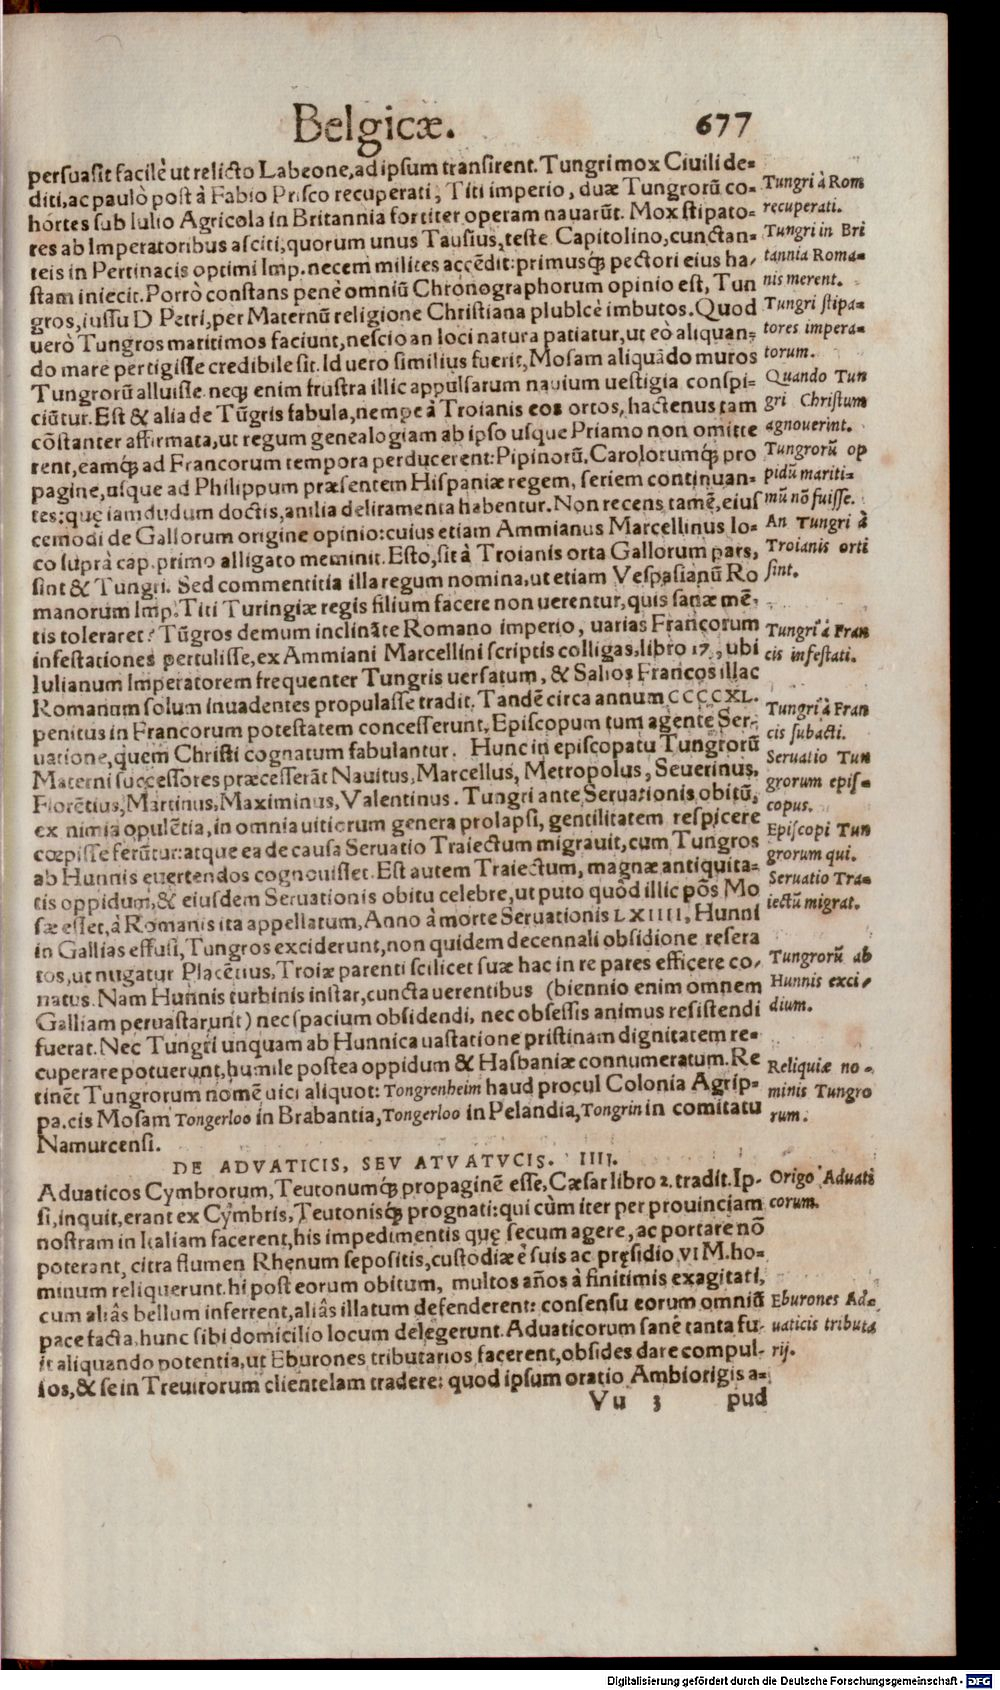 Belgicæ. 677
persuasit facilè ut relicto Labeone, ad ipsum transirent. Tungri mox Ciuili de-
diti, ac paulò post à Fabio Prisco recuperati, Titi imperio, duæ Tungrorũ co-
hortes sub Iulio Agricola in Britannia fortiter operam nauarũt. Mox stipato-
res ab Imperatoribus asciti, quorum unus Tausius, teste Capitolino, cunctan-
teis in Pertinacis optimi Imp. necem milites accẽdit: primusq; pectori eius ha-
stam iniecit. Porrò constans penè omniũ Chronographorum opinio est, Tun
gros, iussu D Petri, per Maternũ religione Christiana plublcè imbutos. Quod
uerò Tungros maritimos faciunt, nescio an loci natura patiatur, ut eò aliquan-
do mare pertigisse credibile sit. Id uero similius fuerit, Mosam aliquãdo muros
Tungrorũ alluisse. neq; enim frustra illic appulsarum nauium uestigia conspi-
ciũtur. Est & alia de Tũgris fabula, nempe à Troianis eos ortos, hactenus tam
cõstanter affirmata, ut regum genealogiam ab ipso usque Priamo non omitte
rent, eamq; ad Francorum tempora perducerent: Pipinorũ, Carolorumq; pro
pagine, usque ad Philippum præsentem Hispaniæ regem, seriem continuan-
tes: quę iamdudum doctis, anilia deliramenta habentur. Non recens tamẽ, eius
cemodi de Gallorum origine opinio: cuius etiam Ammianus Marcellinus lo-
co suprà cap. primo alligato meminit. Esto, sit à Troianis orta Gallorum pars,
sint & Tungri. Sed commentitia illa regum nomina, ut etiam Vespasianũ Ro
manorum Imp. Titi Turingiæ regis filium facere non uerentur, quis sanæ mẽ-
tis toleraret? Tũgros demum inclinãte Romano imperio, uarias Francorum
infestationes pertulisse, ex Ammiani Marcellini scriptis colligas, libro 17., ubi
Iulianum Imperatorem frequenter Tungris uersatum, & Salios Francos illac
Romanum solum inuadentes propulasse tradit. Tandẽ circa annum CCCCXL.
penitus in Francorum potestatem concesserunt, Episcopum tum agente Ser-
uatione, quem Christi cognatum fabulantur. Hunc in episcopatu Tungrorũ
Materni successores præcesserãt Nauitus, Marcellus, Metropolus, Seuerinus,
Florẽtius, Martinus, Maximinus, Valentinus. Tungri ante Seruationis obitũ,
ex nimia opulẽtia, in omnia uitiorum genera prolapsi, gentilitatem respicere
cœpisse ferũtur: atque ea de causa Seruatio Traiectum migrauit, cum Tungros
ab Hunnis euertendos cognouisset. Est autem Traiectum, magnæ antiquita-
tis oppidum, & eiusdem Seruationis obitu celebre, ut puto quòd illic põs Mo
sæ esset, à Romanis ita appellatum, Anno à morte Seruationis LXIIII, Hunni
in Gallias effusi, Tungros exciderunt, non quidem decennali obsidione resera
tos, ut nugatur Placẽtius, Troiæ parenti scilicet suæ hac in re pares efficere co-
natus. Nam Hunnis turbinis instar, cuncta uerentibus (biennio enim omnem
Galliam peruastarunt) nec spacium obsidendi, nec obsessis animus resistendi
fuerat. Nec Tungri unquam ab Hunnica uastatione pristinam dignitatem re-
cuperare potuerunt, humile postea oppidum & Hasbaniæ connumeratum. Re
tinẽt Tungrorum nomẽ uici aliquot: Tongrenheim haud procul Colonia Agrip-
pa. cis Mosam Tongerloo in Brabantia, Tongerloo in Pelandia, Tongrin in comitatu
Namurcensi.
DE ADVATICIS, SEV ATVATVCIS. IIII.
Aduaticos Cymbrorum, Teutonumq; propaginẽ esse, Cæsar libro 2. tradit. Ip-
si, inquit, erant ex Cymbris, Teutonisq; prognati: qui cùm iter per prouinciam
nostram in Italiam facerent, his impedimentis quę secum agere, ac portare nõ
poterant, citra flumen Rhenum sepositis, custodiæ è suis ac pręsidio VI M. ho-
minum reliquerunt. hi post eorum obitum, multos años à finitimis exagitati,
cum aliâs bellum inferrent, aliâs illatum defenderent: consensu eorum omniũ
pace facta, hunc sibi domicilio locum delegerunt. Aduaticorum sanè tanta fu-
it aliquando potentia, ut Eburones tributarios facerent, obsides dare compul-
sos, & se in Treuirorum clientelam tradere: quod ipsum oratio Ambiorigis a-
Vu 3 pud
Tungri à Rom
recuperati.
Tungri in Bri
tannia Roma-
nis merent.
Tungri stipa-
tores impera-
torum.
Quando Tun
gri Christum
agnouerint.
Tungrorũ op
pidũ mariti-
mũ nõ fuisse.
An Tungri à
Troianis orti
sint.
Tungri à Fran
cis infestati.
Tungri à Fran
cis subacti.
Seruatio Tun
grorum epis-
copus.
Episcopi Tun
grorum qui.
Seruatio Tra-
iectũ migrat.
Tungrorũ ab
Hunnis exci-
dium.
Reliquiæ no-
minis Tungro
rum.
Origo Aduati
corum.
Eburones Ad-
uaticis tributa
rij.
Digitalisierung gefördert durch die Deutsche Forschungsgemeinschaft - DFG